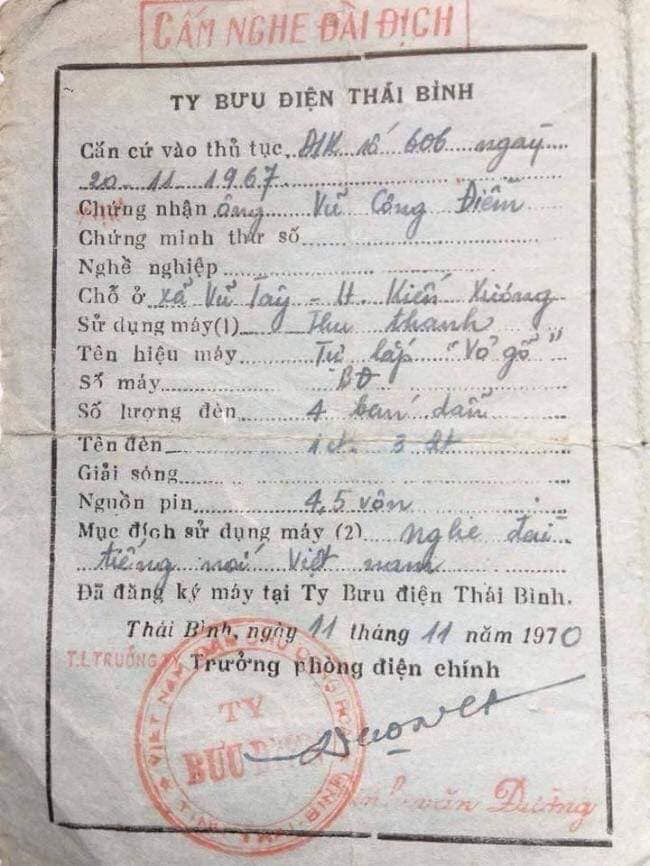 CẤM NGHE ĐÀI ĐỊCH
TY BƯU ĐIỆN THÁI BÌNH
Căn cứ vào thủ tục ĐIK số 606 ngày
20-11-1967
Chứng nhận ông Vũ Công Điền
Chứng minh thư số
Nghề nghiệp
Chỗ ở xã Vũ Tây - H. Kiến Xương
Sử dụng máy(1) Thu thanh
Tên hiệu máy Tự lắp "Vỏ gỗ"
Số máy BĐ
Số lượng đèn 4 bán dẫn
Tên đèn
Giải sóng
Nguồn pin 4,5 vôn
Mục đích sử dụng máy (2) nghe đài
tiếng nói Việt nam
Đã đăng ký máy tại Ty Bưu điện Thái Bình.
Thái Bình, ngày 11 tháng 11 năm 1970
T.L TRƯỞNG TY Trưởng phòng điện chính
VIỆT NAM DÂN CHỦ CỘNG HÒA
TY
BƯU ĐIỆN
TỈNH THÁI BÌNH
văn Dưỡng